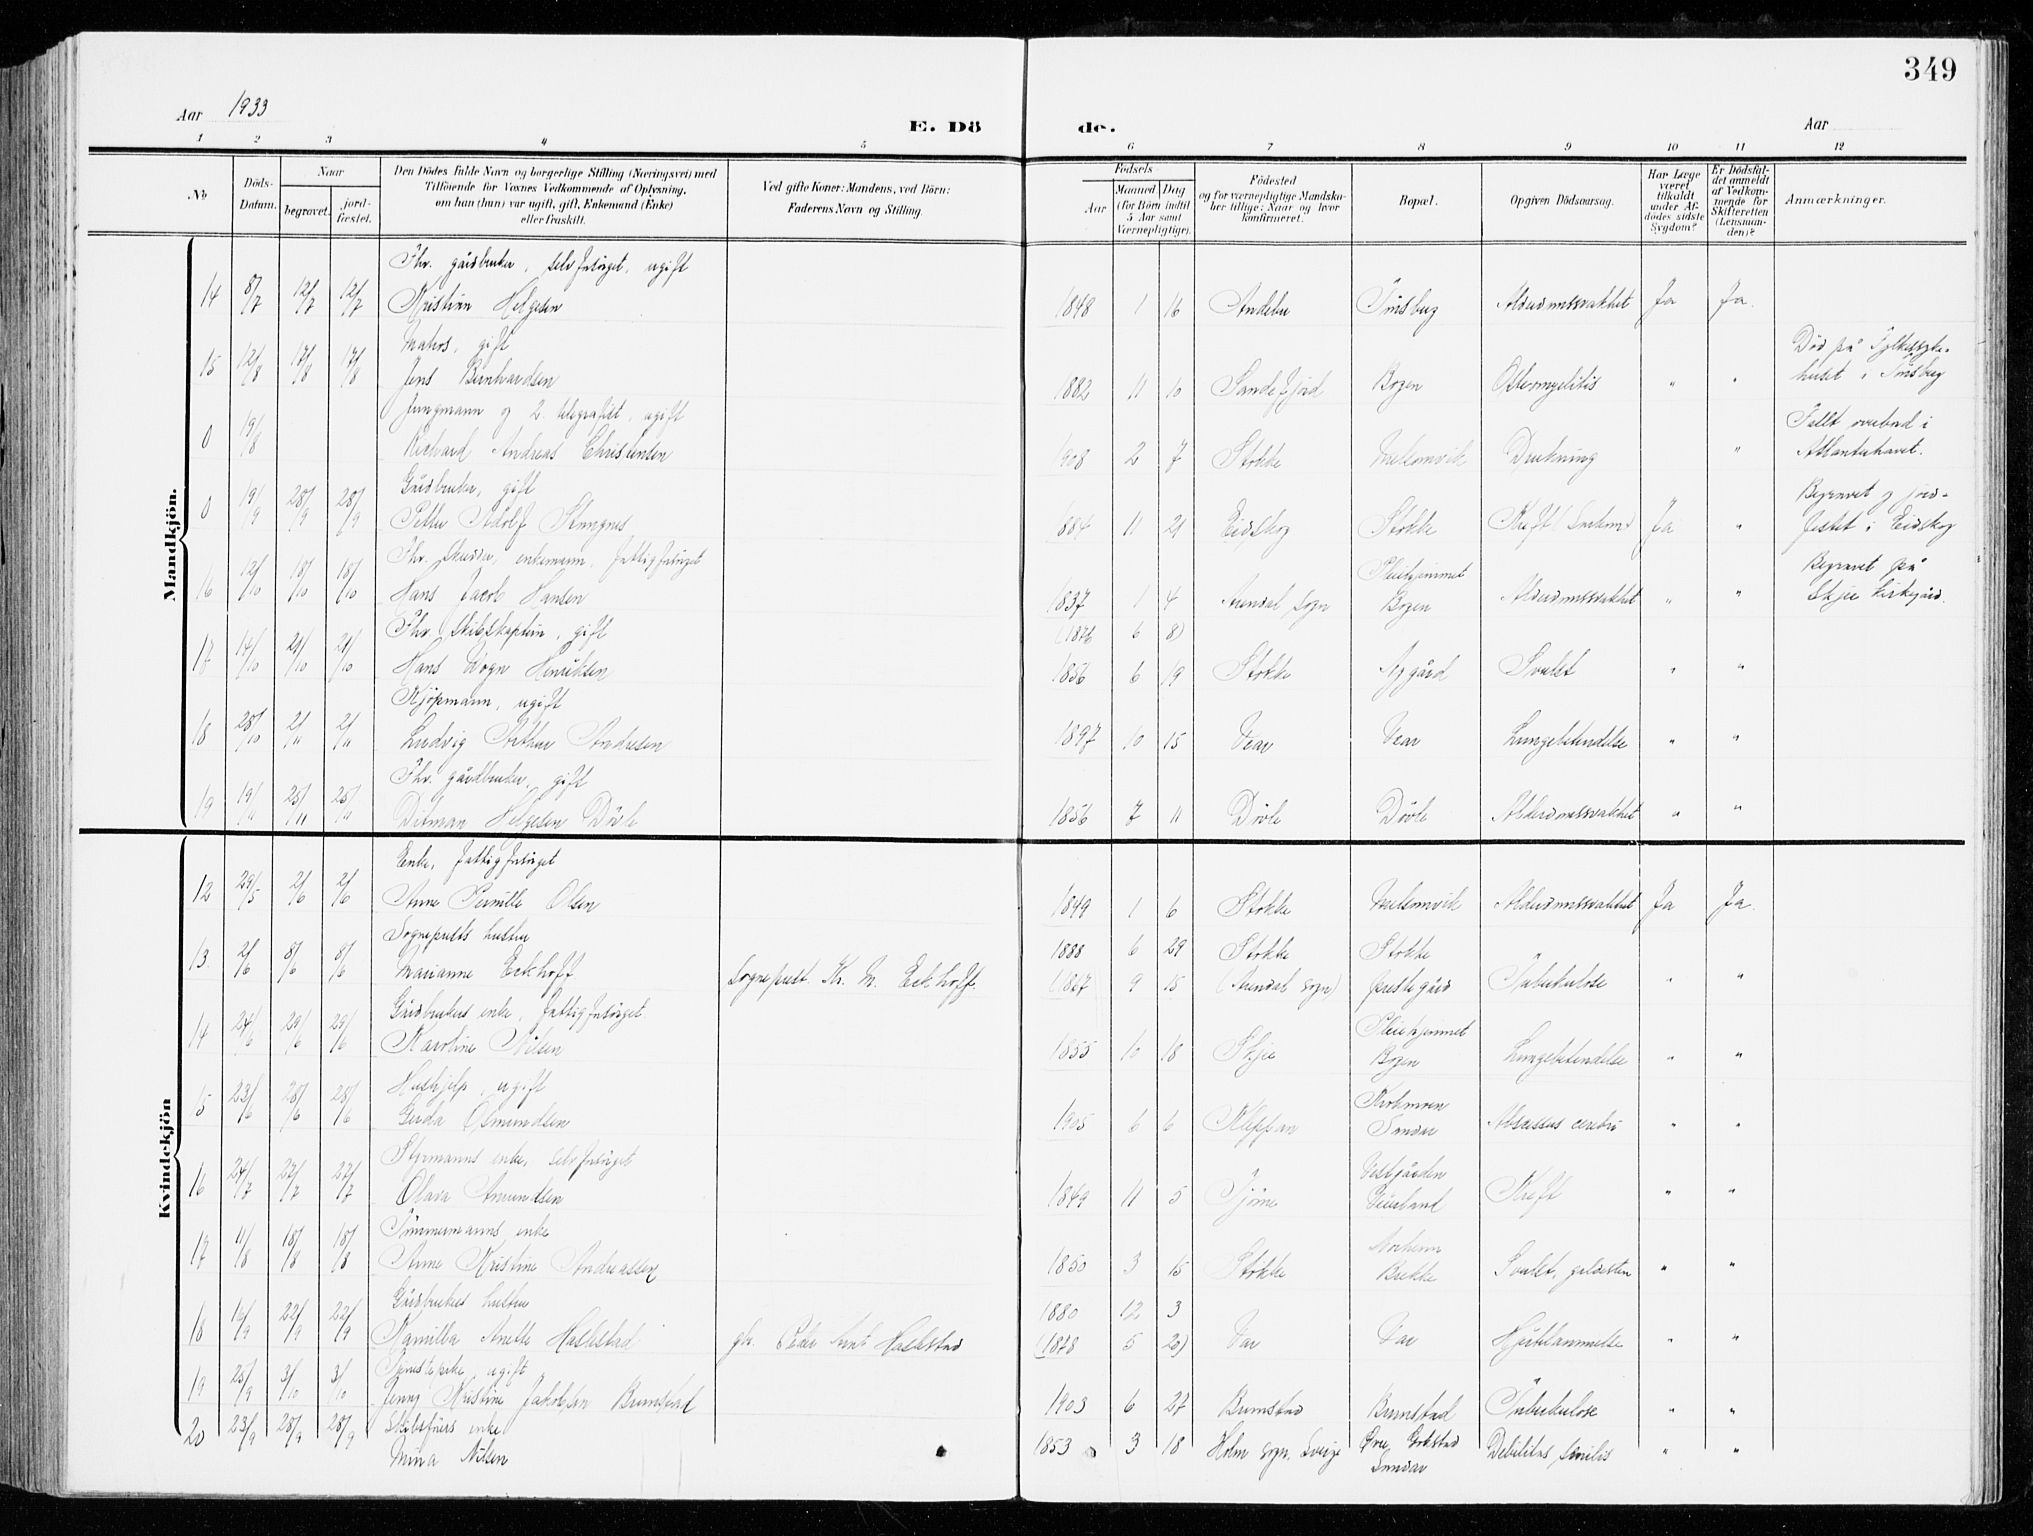 349
Aar 1933
E. Dö
de.
Aar
1 2 3 4 5 6 7 8 9 10 11 12
No
Döds-Datum.
Naar
begravet.
jord-fæstet.
Den Dödes fulde Navn og borgerlige Stilling (Næringsvei) med
Tilföiende for Voxnes Vedkommende af Oplysning,
om han (hun) var ugift, gift, Enkemand (Enke)
eller fraskilt.
Ved gifte Koner: Mandens, ved Börn:
Faderens Navn og Stilling.
Födsels-
Aar
Maaned Dag
(for Börn indtil
5 Aar samt
Værnepligtige).
Födested
og for værnepligtige Mandska-
ber tillige: Naar og hvor
konfirmeret.
Bopæl.
Opgiven Dödsaarsag.
Har Læge
været
tilkaldt
under Af-
dödes sidste
Sygdom?
Er Dödsfal-
det anmeldt
af Vedkom-
mende for
Skifteretten
(Lensman-
den)?
Anmærkninger.
Mandkjön.
Fhv. gårdbruker, selvforsørget, ugift
14 8/7 12/7 12/7 Kristian Helgesen 1848 1 16 Andebu Tønsberg Alderdomssvakhet Ja Ja.
Matros, gift
15 12/8 17/8 17/8 Jens Bernhardsen 1882 11 10 Sandefjord Bogen Osteomyelitis " " Død på Fylkessyke-
huset i Tønsberg
Jungmann og 2. telegrafist, ugift
0 19/8 Richard Andreas Christensen 1908 2 7 Stokke Melsomvik Drukning " Falt overbord i
Atlanterhavet.
Gårdbruker, gift
0 19/9 28/9 28/9 Petter Adolf 1884 11 21 Eidskog Stokke Kreft Ja " Begravet og jord-
festet i Eidskog
Fhv. skredder, enkemann, fattigforsørget
16 12/10 18/10 18/10 Hans Jacob Hansen 1837 1 4 Arendal sogn Pleiehjemmet
Bogen Alderdomssvakhet " " Begravet på
Skjee kirkegård.
Fhv. skibskaptein, gift (1876 6 8)
17 14/10 21/10 21/10 Hans Wogn Henriksen 1856 6 19 Stokke Nygård Svulst " "
Kjøpmann, ugift
18 28/10 2/11 2/11 Ludvig Arthur Andresen 1897 10 15 Vear Vear Lungebetendelse " "
Fhv. gårdbruker, gift
19 19/11 25/11 25/11 Ditman Helgesen Døvle 1856 7 11 Døvle Døvle Alderdomssvakhet " "
Kvindekjön
Enke, fattigforsørget
12 29/5 2/6 2/6 Anne Pernille Olsen 1849 1 6 Stokke Melsomvik Alderdomssvakhet Ja Ja.
Sogneprests hustru
13. 2/6 8/6 8/6 Marianne Eckhoff Sogneprest Kr. M. Eckhoff. 1888 6 29 Stokke Stokke
(1867 9 15 (Arendal sogn) prestegård Tuberkulose " "
Gårdbrukers enke, fattigforsørget.
14 24/6 29/6 29/6 Karoline Nilsen 1855 10 18 Skjee Pleiehjemmet
Bogen Lungebetendelse " "
Hushjelp, ugift
15 23/6 28/6 28/6 Gerda Osmundsen 1905 6 6 Kleppan
Sandar Abscessus cerebri " "
Styrmanns enke, selvforsørget
16 24/7 27/7 27/7 Olava Amundsen 1849 11 5 Tjøme Vestgården
Veierland Kreft " "
Tømmermanns enke
17 11/8 18/8 18/8 Anne Kristine Andreassen 1850 3 15 Stokke
Brekke Svulst, galdesten " "
Gårdbrukers hustru
18 16/9 22/9 22/9 Kamilla Anette Holtstad gb. Peder Holtstad 1880 12 3
(1878 5 20) Vear Vear Hjertelammelse " "
Tjenestepike, ugift
19 25/9 3/10 3/10 Jenny Kristine Jakobsen Brunstad 1903 6 27 Brunstad Brunstad Tuberkulose " "
Skibsførers enke
20 23/9 28/9 28/9 Mina Nilsen 1853 3 18 Holm sogn, Sverige Øvre Gokstad
Sandar Debilitas senilis " "